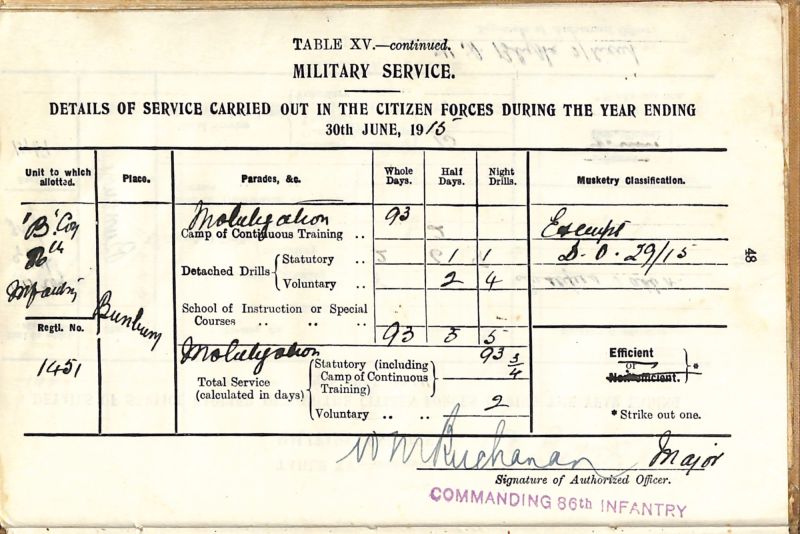 TABLE XV.—continued.
MILITARY SERVICE.
DETAILS OF SERVICE CARRIED OUT IN THE CITIZEN FORCES DURING THE YEAR ENDING
30th JUNE, 1915
Unit to which allotted.
Place.
Parades, &c.
Whole Days.
Half Days.
Night Drills.
Musketry Classification.
'B' Coy
86th
Infantry
Regtl. No.
1451
Bunbury
Mobilization 93
Camp of Continuous Training ..
Detached Drills
Statutory .. 1 1
Voluntary .. 2 4
School of Instruction or Special
Courses .. .. ..
93 3 5
Exempt
D.O. 29/15
Mobilization 93
Total Service
(calculated in days)
Statutory (including
Camp of Continuous
Training) 3/4
Voluntary .. .. 2
Efficient
or
Non-efficient.
*
* Strike out one.
48
W M Buchanan Major
Signature of Authorized Officer.
COMMANDING 86th INFANTRY